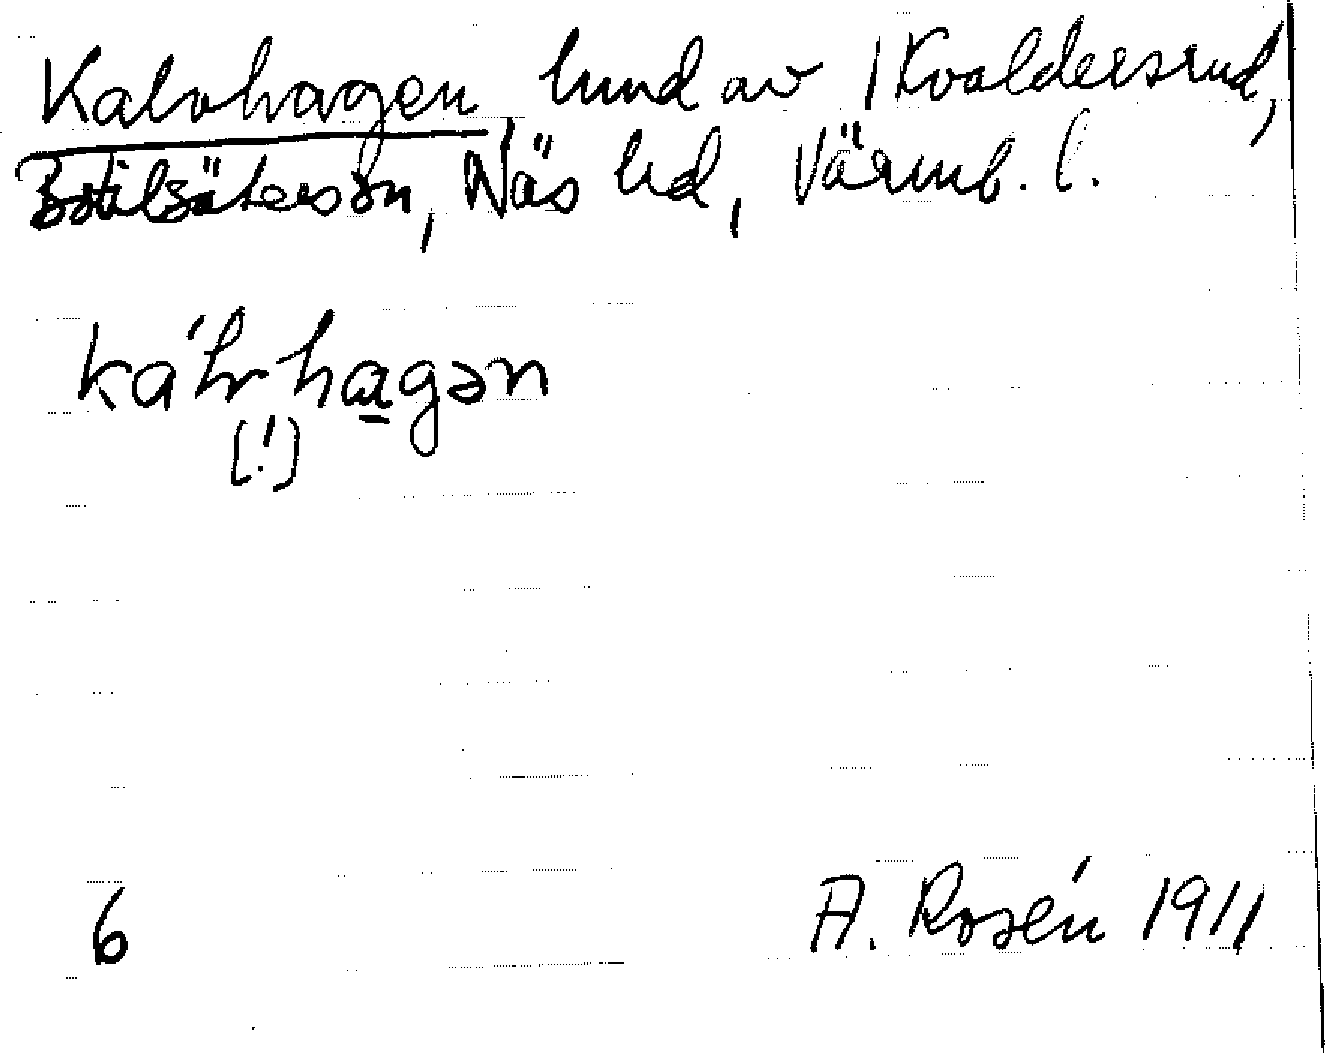 Kalvhagen, lund av 1 Kvaldersrud,
Botilsäters sn, Näs hd, Värml. l.
ka'lvhagən
(!)
6 A. Rosén 1911